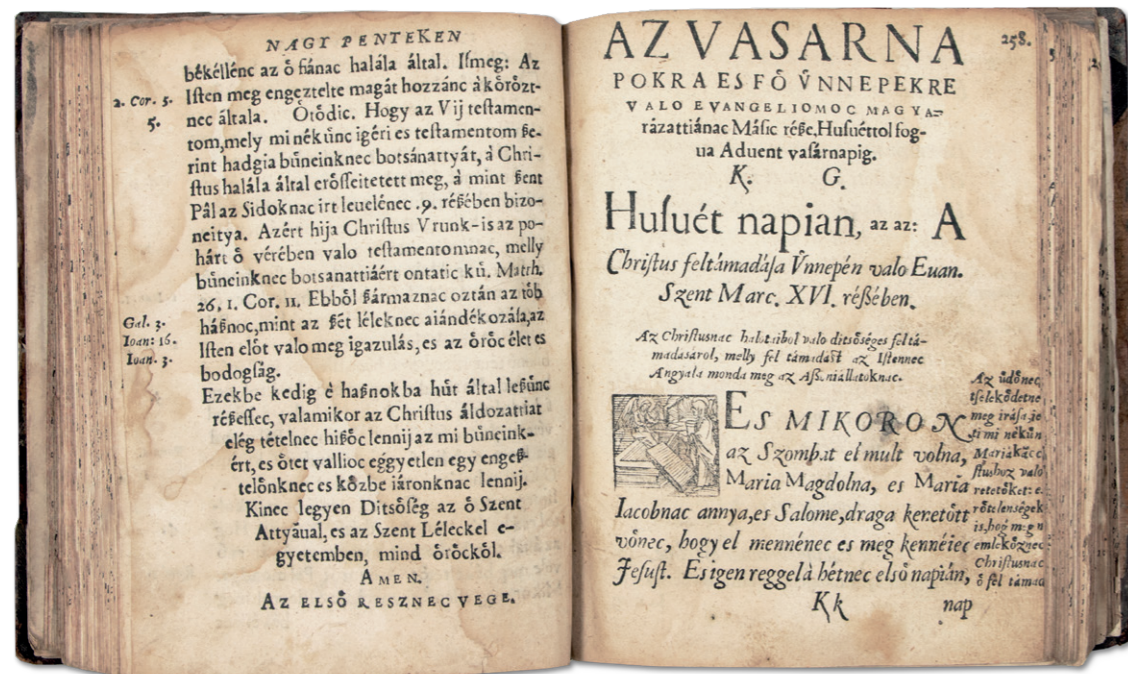 NAGY PENTEKEN
békéllénc az ő fiánac halála által. Iſmeg: Az
Iſten meg engeztelte magát hozzánc à kőrőzt-
nec általa. Ötődic. Hogy az Vij teſtamen-
tom, mely mi nékűnc igéri es teſtamentom ße-
rint hadgia bűneinknec botsánattyát, à Chri-
ſtus halála által erőſſeitetett meg, à mint ßent
Pál az Sidoknac irt leuelénec .9. réßében bizo-
neitya. Azért hija Chriſtus Vrunk-is az po-
hárt ő vérében valo teſtamentomnac, melly
bűneinknec botsanattiáért ontatic kű. Matth.
26, 1. Cor. 11. Ebből ßármaznac oztán az tőb
háßnoc, mint az ßét léleknec aiándékozála, az
Iſten előt valo meg igazulás, es az őrőc élet es
bodogſág.
2. Cor. 5.
5.
Gal. 3.
Ioan: 16.
Ioan. 3.
Ezekbe kedig è haßnokba hűt által leßűnc
réßeſſec, valamikor az Chriſtus áldozattiat
elég tételnec hißőc lennij az mi bűneink-
ért, es őtet vallioc eggyetlen egy engeß-
telőnknec es kőzbe iáronknac lennij.
Kinec legyen Ditsőſég az ő Szent
Attyáual, es az Szent Léleckel e-
gyetemben, mind őrőckől.
AMEN.
AZ ELSŐ RESZNEC VEGE.
AZ VASARNA
258.
POKRA ES FŐ ŰNNEPEKRE
VALO EVANGELIOMOC MAGYA-
rázattiánac Másic réße, Huſuéttol fog-
ua Aduent vaſárnapig.
K. G.
Huſuét napian, az az: A
Chriſtus feltámadáſa Űnnepén valo Euan.
Szent Marc. XVI. réſzében.
Az Chriſtusnac halottaibol valo ditsőséges feltá-
madasárol, melly fel támadást az Iſtennec
Angyala monda meg az Aßoniállatoknac.
ES MIKORON
az Szombat el mult volna,
Maria Magdolna, es Maria
Iacobnac annya, es Salome, draga kenetőtt
vőnec, hogy el mennénec es meg kennéiec
Jeſuſt. Es igen reggel à hétnec első napián,
Az űdőnec
tſelekődetne
meg irása ie
mi nékűn
ſtushoz valo
is, hog
emlekőznec
Chriſtusnac
ő fel támad
Kk nap